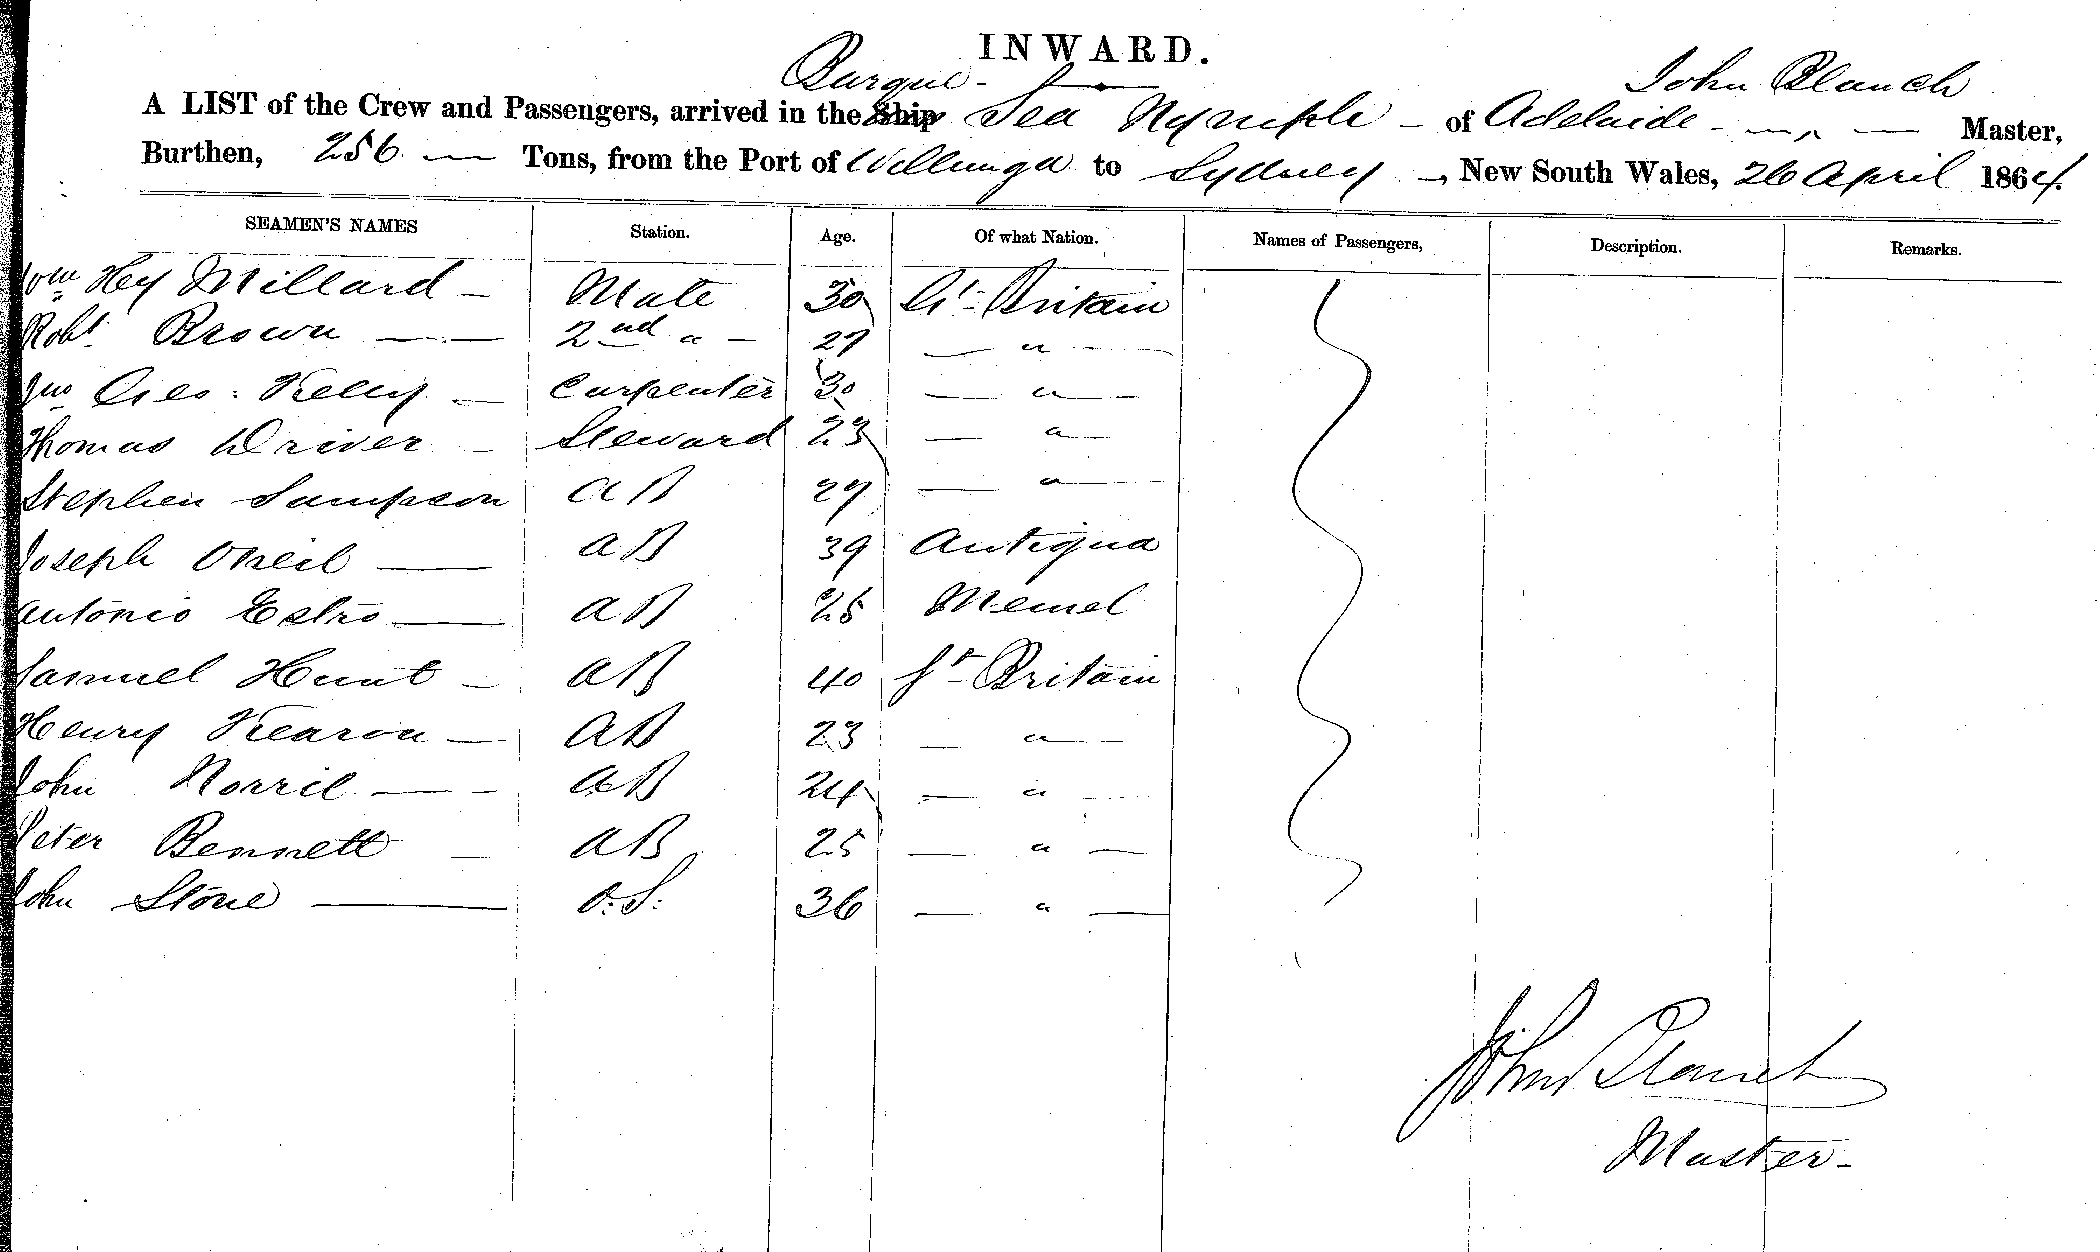 INWARD.
Barque John Blanch
A LIST of the Crew and Passengers, arrived in the Ship Sea Nymph of Adelaide Master,
Burthen, 256 Tons, from the Port of Willunga to Sydney, New South Wales, 26 April 1864.
SEAMEN'S NAMES Station. Age. Of what Nation. Names of Passengers, Description. Remarks.
Wm Hy Millard Mate 30 Gt Britain
Robt Brown 2nd " 27 "
Jno Geo: Kelly Carpenter 30 "
Thomas Driver Steward 23 "
Stephen Sampson AB 29 "
Joseph Oneil AB 39 Antigua
Antonio AB 25 Memel
Samuel Hunt AB 40 Gt Britain
Henry Kearon AB 23 "
John Norril AB 24 "
Peter Bennett AB 25 "
John Stone O.S. 36 "
John Blanch
Master